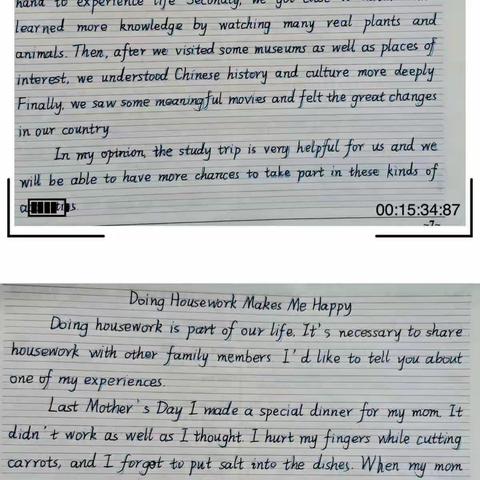 hand to experience life Secondly, we got
learned more knowledge by watching many real plants and
animals. Then, after we visited some museums as well as places of
interest, we understood Chinese history and culture more deeply
Finally, we saw some meaningful movies and felt the great changes
in our country
In my opinion, the study trip is very helpful for us and we
will be able to have more chances to take part in these kinds of
00:15:34:87
~7~
Doing Housework Makes Me Happy
Doing housework is part of our life. It's necessary to share
housework with other family members I'd like to tell you about
one of my experiences.
Last Mother's Day I made a special dinner for my mom. It
didn't work as well as I thought. I hurt my fingers while cutting
carrots, and I forgot to put salt into the dishes. When my mom